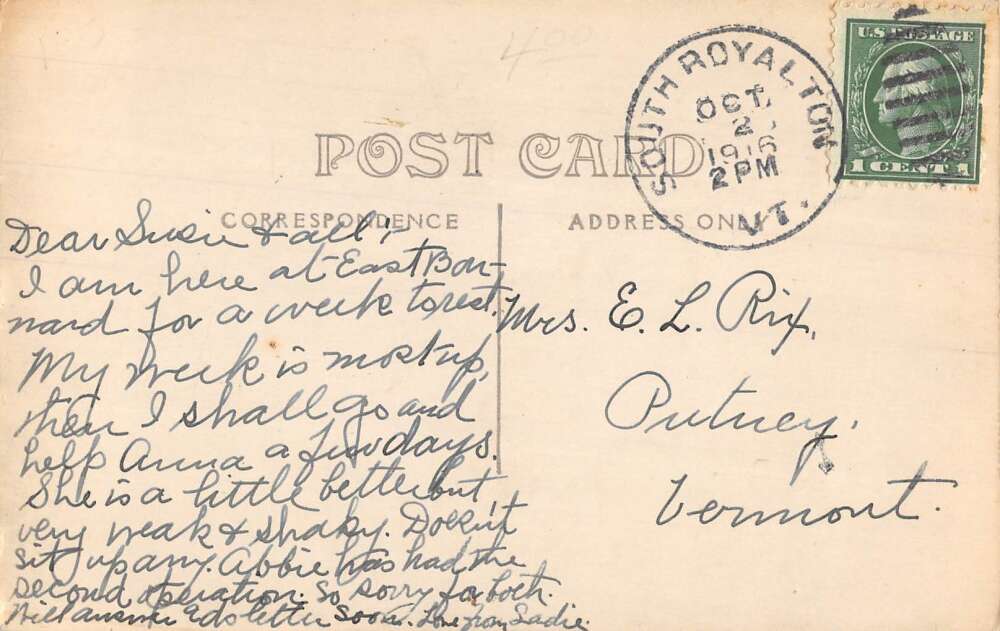 400
U.S. POSTAGE
1 CENT 1
SOUTH ROYALTON
OCT.
2
1916
2 PM
VT.
POST CARD
CORRESPONDENCE
ADDRESS ONLY
Dear Susie & all:-
I am here at East Bar-
nard for a week to rest.
My week is most up,
then I shall go and
help Anna a few days.
She is a little better but
very weak & shaky. Doesn't
sit up any. Abbie has had the
second operation. So sorry for both.
Will answer Eds letter soon. Love from Sadie.
Mrs. E. L. Rix,
Putney,
Vermont.